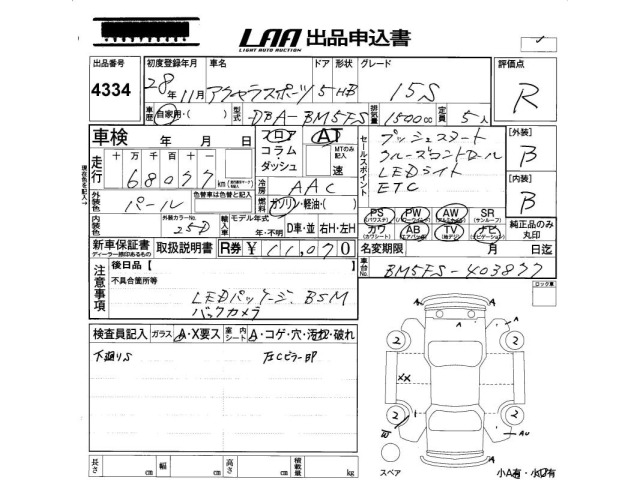 LAA 出品申込書
LIGHT AUTO AUCTION
出品番号 初度登録年月 車名 ドア 形状 グレード 評価点
4334 28年11月 アクセラスポーツ 5 HB 15S R
車歴 自家用・( ) 型式 DBA-BM5FS 排気量 1500cc 定員 5人
車検 年 月 日
フロア コラム・ダッシュ AT MTのみ記入 速
セールスポイント
プッシュスタート
クルーズコントロール
LEDライト
ETC
[外装] B
[内装] B
走行 十 万 千 百 十 一
68077 km
冷房 AAC
外装色 パール 色替車は色替と記入
燃料 ガソリン・軽油・( )
内装色 外装カラーNo. 25D
輸入車 モデル年式 年・不明 D車・並 右H・左H
PS (パワステ) PW (パワーウインドー) AW (アルミホイル) SR (サンルーフ)
カワ (カワシート) AB (エアバック) TV (地デジ) ナビ (ナビゲーション)
純正品のみ丸印
新車保証書 取扱説明書 R券 ¥11,070
ディーラー捺印あるもの
名変期限 月 日迄
車台No. BM5FS-403877
ロック車
注意事項
後日品【 】
不具合箇所等
LEDパッケージ、BSM
バックカメラ
検査員記入 ガラス A・X要ス 室内シート A・コゲ・穴・汚れ・破れ
下廻りS 左Cピラー凹
A A
2 2
XX
2 2
W AU
A
スペア 小A有・小凹有
長さ cm 幅 cm 高さ cm 積載量 kg